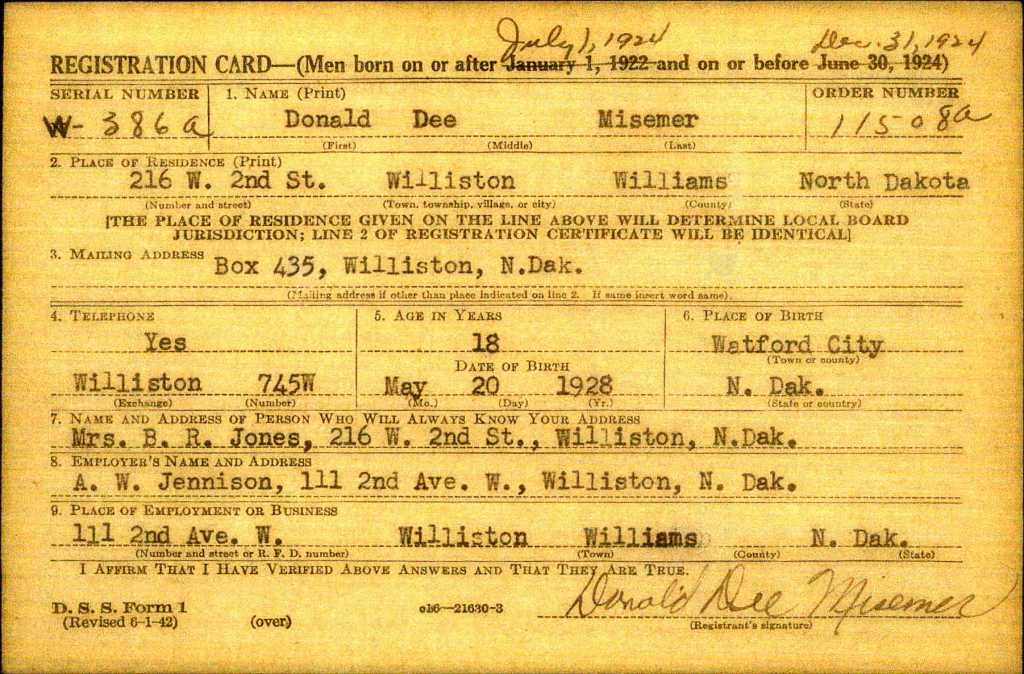 July 1, 1924 Dec. 31, 1924
REGISTRATION CARD—(Men born on or after January 1, 1922 and on or before June 30, 1924)
SERIAL NUMBER 1. NAME (Print) ORDER NUMBER
W- 386a Donald Dee Misemer 11508a
(First) (Middle) (Last)
2. PLACE OF RESIDENCE (Print)
216 W. 2nd St. Williston Williams North Dakota
(Number and street) (Town, township, village, or city) (County) (State)
[THE PLACE OF RESIDENCE GIVEN ON THE LINE ABOVE WILL DETERMINE LOCAL BOARD
JURISDICTION; LINE 2 OF REGISTRATION CERTIFICATE WILL BE IDENTICAL]
3. MAILING ADDRESS Box 435, Williston, N.Dak.
(Mailing address if other than place indicated on line 2. If same insert word same)
4. TELEPHONE 5. AGE IN YEARS 6. PLACE OF BIRTH
Yes 18 Watford City
DATE OF BIRTH (Town or county)
Williston 745W May 20 1928 N. Dak.
(Exchange) (Number) (Mo.) (Day) (Yr.) (State or country)
7. NAME AND ADDRESS OF PERSON WHO WILL ALWAYS KNOW YOUR ADDRESS
Mrs. B. R. Jones, 216 W. 2nd St., Williston, N.Dak.
8. EMPLOYER'S NAME AND ADDRESS
A. W. Jennison, 111 2nd Ave. W., Williston, N. Dak.
9. PLACE OF EMPLOYMENT OR BUSINESS
111 2nd Ave. W. Williston Williams N. Dak.
(Number and street or R. F. D. number) (Town) (County) (State)
I AFFIRM THAT I HAVE VERIFIED ABOVE ANSWERS AND THAT THEY ARE TRUE.
D. S. S. Form 1 o16—21630-3 Donald Dee Misemer
(Revised 6-1-42) (over) (Registrant's signature)